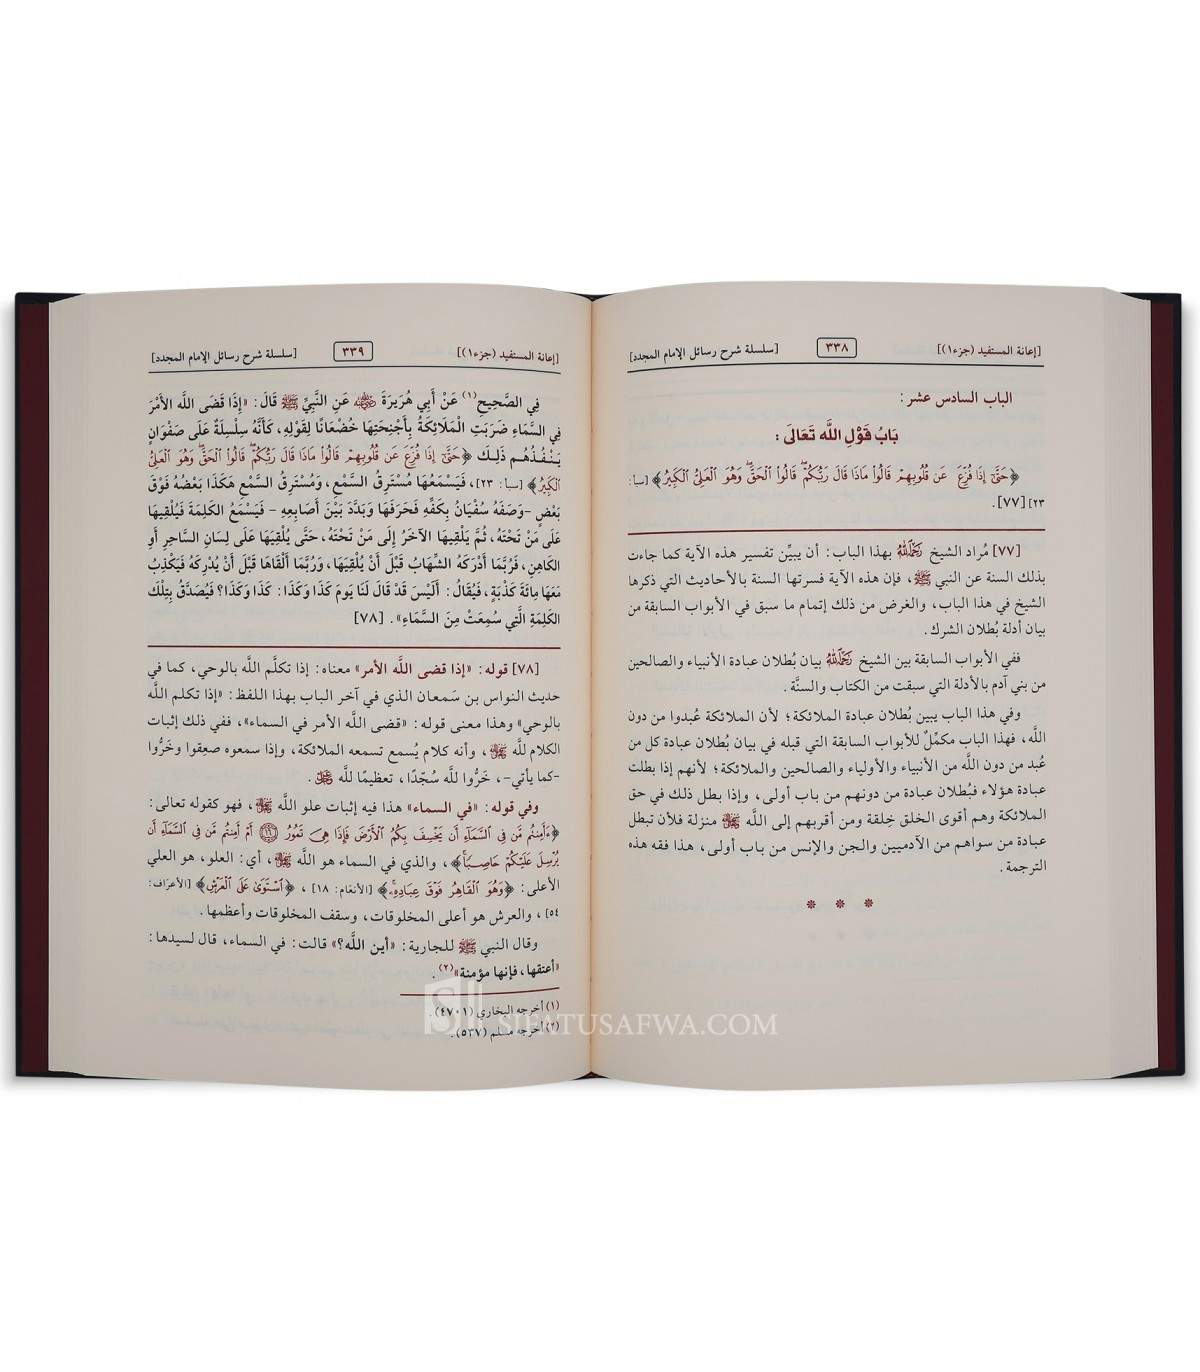 [إعانة المستفيد (جزء١)] ٣٣٨ [سلسلة شرح رسائل الإمام المجدد]
الباب السادس عشر :
بَابُ قَوْلِ اللَّه تَعَالَى :
﴿حَتَّىٰٓ إِذَا فُزِّعَ عَن قُلُوبِهِمْ قَالُوا۟ مَاذَا قَالَ رَبُّكُمْ ۖ قَالُوا۟ ٱلْحَقَّ ۖ وَهُوَ ٱلْعَلِىُّ ٱلْكَبِيرُ﴾ [سبأ:
٢٣] [٧٧].
[٧٧] مُراد الشيخ رَحِمَهُ اللَّهُ بهذا الباب: أن يبيِّن تفسير هذه الآية كما جاءت
بذلك السنة عن النبي ﷺ، فإن هذه الآية فسرتها السنة بالأحاديث التي ذكرها
الشيخ في هذا الباب، والغرض من ذلك إتمام ما سبق في الأبواب السابقة من
بيان أدلة بُطلان الشرك.
ففي الأبواب السابقة بين الشيخ رَحِمَهُ اللَّهُ بيان بُطلان عبادة الأنبياء والصالحين
من بني آدم بالأدلة التي سبقت من الكتاب والسنَّة.
وفي هذا الباب يبين بُطلان عبادة الملائكة؛ لأن الملائكة عُبدوا من دون
اللَّه، فهذا الباب مكمِّلٌ للأبواب السابقة التي قبله في بيان بُطلان عبادة كل من
عُبد من دون اللَّه من الأنبياء والأولياء والصالحين والملائكة؛ لأنهم إذا بطلت
عبادة هؤلاء فبُطلان عبادة من دونهم من باب أولى، وإذا بطل ذلك في حق
الملائكة وهم أقوى الخلق خِلقة ومن أقربهم إلى اللَّه ﷻ منزلة فلأن تبطل
عبادة من سواهم من الآدميين والجن والإنس من باب أولى، هذا فقه هذه
الترجمة.
[إعانة المستفيد (جزء١)] ٣٣٩ [سلسلة شرح رسائل الإمام المجدد]
فِي الصَّحِيحِ(١) عَنْ أَبِي هُرَيرَةَ رضي الله عنه عَنِ النَّبِيِّ ﷺ قَالَ: «إِذَا قَضَى اللَّه الأَمْرَ
فِي السَّمَاءِ ضَرَبَتِ الْمَلَائِكَةُ بِأَجْنِحَتِهَا خُضْعَانًا لِقَوْلِهِ، كَأَنَّهُ سِلْسِلَةٌ عَلَى صَفْوَانٍ
يَنْفُذُهُم ذَلِكَ ﴿حَتَّىٰٓ إِذَا فُزِّعَ عَن قُلُوبِهِمْ قَالُوا۟ مَاذَا قَالَ رَبُّكُمْ ۖ قَالُوا۟ ٱلْحَقَّ ۖ وَهُوَ ٱلْعَلِىُّ
ٱلْكَبِيرُ﴾ [سبأ: ٢٣]، فَيَسْمَعُهَا مُسْتَرِقُ السَّمْعِ، وَمُسْتَرِقُ السَّمْعِ هَكَذَا بَعْضُهُ فَوْقَ
بَعْضٍ -وَصَفَهُ سُفْيَانُ بِكَفِّهِ فَحَرَفَهَا وَبَدَّدَ بَيْنَ أَصَابِعِهِ - فَيَسْمَعُ الكَلِمَةَ فَيُلْقِيهَا
عَلَى مَنْ تَحْتَهُ، ثُمَّ يَلْقِيهَا الآخَرُ إِلَى مَنْ تَحْتَهُ، حَتَّى يُلْقِيَهَا عَلَى لِسَانِ السَّاحِرِ أَوِ
الكَاهِنِ، فَرُبَّمَا أَدْرَكَهُ الشِّهَابُ قَبْلَ أَنْ يُلْقِيَهَا، وَرُبَّمَا أَلْقَاهَا قَبْلَ أَنْ يُدْرِكَهُ فَيَكْذِبُ
مَعَهَا مِائَةَ كَذْبَةٍ، فَيُقَالُ: أَلَيْسَ قَدْ قَالَ لَنَا يَومَ كَذَا وَكَذَا: كَذَا وَكَذَا؟ فَيُصَدَّقُ بِتِلْكَ
الكَلِمَةِ الَّتِي سُمِعَتْ مِنَ السَّمَاءِ». [٧٨]
[٧٨] قوله: «إذا قضى اللَّه الأمر» معناه: إذا تكلَّم اللَّه بالوحي، كما في
حديث النواس بن سَمعان الذي في آخر الباب بهذا اللفظ: «إذا تكلم اللَّه
بالوحي» وهذا معنى قوله: «قضى اللَّه الأمر في السماء»، ففي ذلك إثبات
الكلام للَّه ﷻ، وأنه كلام يُسمع تسمعه الملائكة، وإذا سمعوه صعِقوا وخَرُّوا
-كما يأتي-، خَرُّوا للَّه سُجّدًا، تعظيمًا للَّه ﷻ.
وفي قوله: «في السماء» هذا فيه إثبات علو اللَّه ﷻ، فهو كقوله تعالى:
﴿ءَأَمِنتُم مَّن فِى ٱلسَّمَآءِ أَن يَخْسِفَ بِكُمُ ٱلْأَرْضَ فَإِذَا هِىَ تَمُورُ ۝١٦ أَمْ أَمِنتُم مَّن فِى ٱلسَّمَآءِ أَن
يُرْسِلَ عَلَيْكُمْ حَاصِبًا﴾، والذي في السماء هو اللَّه ﷻ، أي: العلو، هو العلي
الأعلى: ﴿وَهُوَ ٱلْقَاهِرُ فَوْقَ عِبَادِهِۦ﴾ [الأنعام: ١٨]، ﴿ٱسْتَوَىٰ عَلَى ٱلْعَرْشِ﴾ [الأعراف:
٥٤]، والعرش هو أعلى المخلوقات، وسقف المخلوقات وأعظمها.
وقال النبي ﷺ للجارية: «أين اللَّه؟» قالت: في السماء، قال لسيدها:
«أعتقها، فإنها مؤمنة»(٢).
(١) أخرجه البخاري (٤٧٠١).
(٢) أخرجه مسلم (٥٣٧).
SIFATUSAFWA.COM